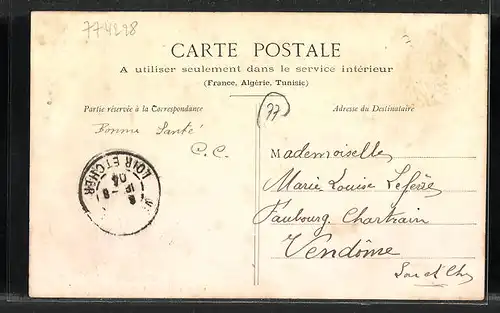 774228
CARTE POSTALE
A utiliser seulement dans le service intérieur
(France, Algérie, Tunisie)
77
Partie réservée à la Correspondance
Adresse du Destinataire
Bonne Santé
C. C.
LOIR ET CHER
04
Mademoiselle
Marie Louise Lefère
Faubourg Chartrain
Vendôme
Loir et Cher